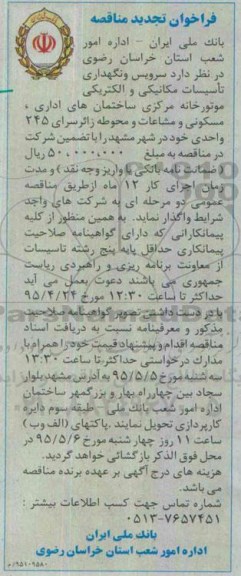 فراخوان تجدید مناقصه
بانک ملی ایران - اداره امور
شعب استان خراسان رضوی
در نظر دارد سرویس ونگهداری
تأسیسات مکانیکی و الکتریکی
موتورخانه مرکزی ساختمان های اداری ،
مسکونی و مشاعات و محوطه زائرسرای ۲۴۵
واحدی خود در شهر مشهد را با تضمین شرکت
در مناقصه به مبلغ ۵۰,۰۰۰,۰۰۰ ریال
(ضمانت نامه بانکی یا واریز وجه نقد) و مدت
زمان اجرای کار ۱۲ ماه ازطریق مناقصه
عمومی دو مرحله ای به شرکت های واجد
شرایط واگذار نماید. به همین منظور از کلیه
پیمانکارانی که دارای گواهینامه صلاحیت
پیمانکاری حداقل پایه پنج رشته تاسیسات
از معاونت برنامه ریزی و راهبردی ریاست
جمهوری می باشند دعوت بعمل می آید
حداکثر تا ساعت ۱۲:۳۰ مورخ ۹۵/۴/۲۴
با در دست داشتن تصویر گواهینامه صلاحیت
مذکور و معرفینامه نسبت به دریافت اسناد
مناقصه اقدام و پیشنهاد قیمت خود را همراه با
مدارک درخواستی حداکثر تا ساعت ۱۳:۳۰
سه شنبه مورخ ۹۵/۵/۵ به آدرس مشهد بلوار
سجاد بین چهارراه بهار و بزرگمهر ساختمان
اداره امور شعب بانک ملی - طبقه سوم دایره
کارپردازی تحویل نمایند. پاکتهای (الف وب)
ساعت ۱۱ روز چهار شنبه مورخ ۹۵/۵/۶ در
محل فوق الذکر بازگشائی خواهد گردید.
هزینه های درج آگهی بر عهده برنده مناقصه
می باشد.
شماره تماس جهت کسب اطلاعات بیشتر :
۰۵۱۳-۷۶۵۷۴۵۱
بانک ملی ایران
اداره امور شعب استان خراسان رضوی
۹۵۱۰۹۵۸۰/م